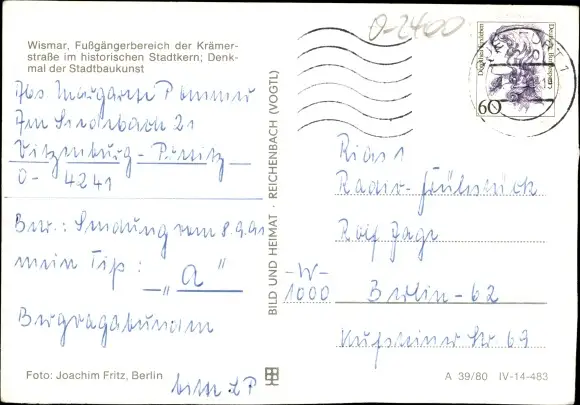 O-2400
Wismar, Fußgängerbereich der Krämer-
straße im historischen Stadtkern; Denk-
mal der Stadtbaukunst
Abs. Margarete Pommer
Am Seederbach 21
Vitzenburg-
O- 4241
Betr.: Sendung vom 8.9.91
mein Tip :
"a"
bitte LP
BILD UND HEIMAT · REICHENBACH (VOGTL)
60
Rias 1
Radio-Frühstück
Rolf
-W-
1000 Berlin-62
Kufsteiner Str 69
Foto: Joachim Fritz, Berlin
A 39/80 IV-14-483